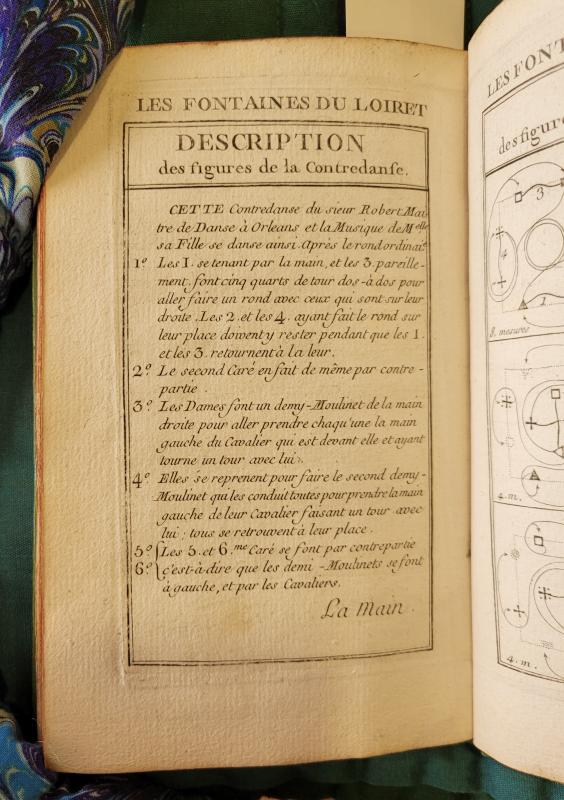 LES FONTAINES DU LOIRET
DESCRIPTION
des figures de la Contredanse.
CETTE Contredanse du sieur Robert Mai-
tre de Danse à Orleans et la Musique de Melle
sa Fille se danse ainsi. Après le rond ordinaire.
1º Les 1. se tenant par la main, et les 3. pareille-
ment, font cinq quarts de tour dos-à dos pour
aller faire un rond avec ceux qui sont sur leur
droite. Les 2. et les 4. ayant fait le rond sur
leur place doivent y rester pendant que les 1.
et les 3. retournent à la leur.
2º Le second Caré en fait de même par contre-
partie.
3º Les Dames font un demy-Moulinet de la main
droite pour aller prendre chaqu'une la main
gauche du Cavalier qui est devant elle et ayant
tourne un tour avec lui.
4º Elles se reprenent pour faire le second demy-
Moulinet qui les conduit toutes pour prendre la main
gauche de leur Cavalier faisant un tour avec
lui; tous se retrouvent à leur place.
5º Les 5. et 6.me Caré se font par contrepartie
6º c'est-à-dire que les demi-Moulinets se font
à gauche, et par les Cavaliers.
La Main
LES FONT
des figure
3
4
1
8. mesures
4. m.
4. m.